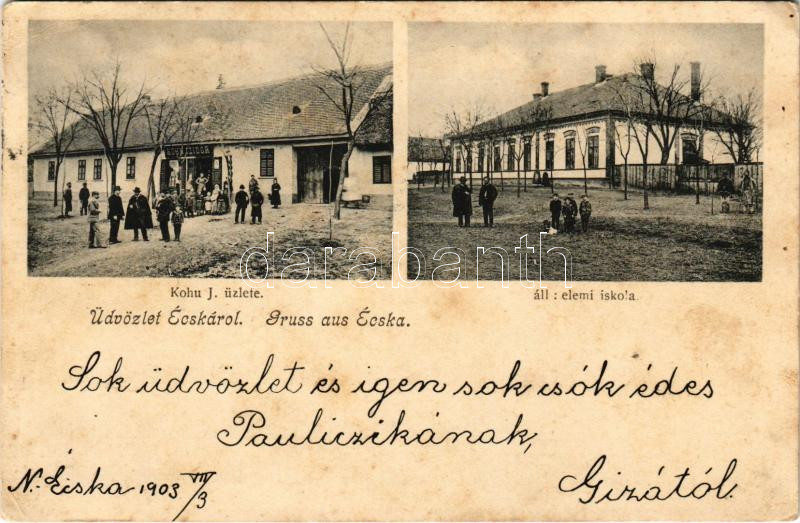 KOHN IZIDOR
darabanth
Kohu J. üzlete.
áll : elemi iskola.
Üdvözlet Écskárol. Gruss aus Écska.
Sok üdvözlet és igen sok csók édes
Pauliczikának,
Gizától.
N. Écska 1903 VII/3